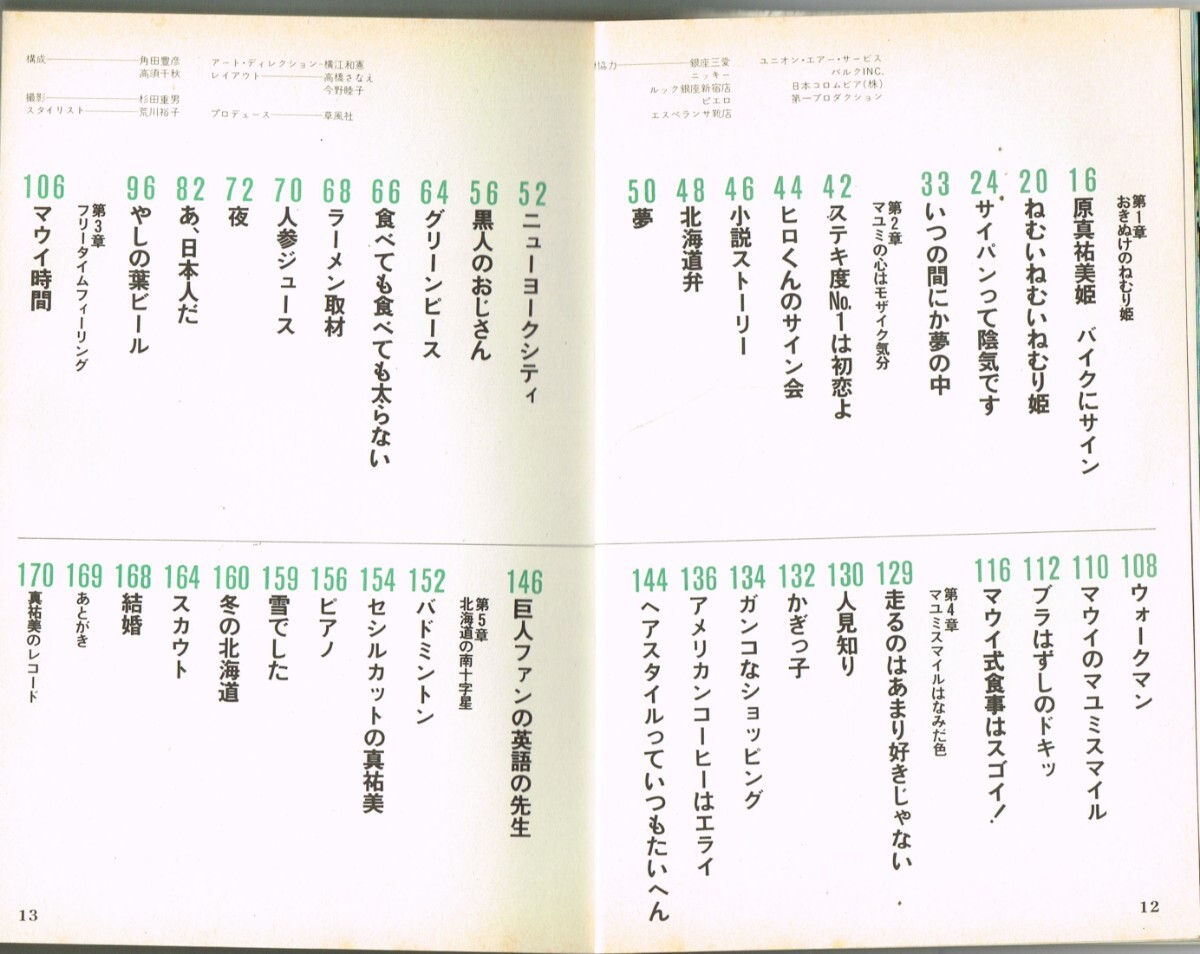 構成――角田豊彦
高須千秋
撮影――杉田重男
スタイリスト――荒川裕子
アート・ディレクション―横江和憲
レイアウト――高橋さなえ
今野睦子
プロデュース――章風社
協力――銀座三愛
ニッキー
ルック銀座新宿店
ピエロ
エスペランサ靴店
ユニオン・エアー・サービス
パルクINC.
日本コロムビア(株)
第一プロダクション
第1章
おきぬけのねむり姫
16 原真祐美姫 バイクにサイン
20 ねむいねむいねむり姫
24 サイパンって陰気です
33 いつの間にか夢の中
第2章
マユミの心はモザイク気分
42 ステキ度No.1は初恋よ
44 ヒロくんのサイン会
46 小説ストーリー
48 北海道弁
50 夢
52 ニューヨークシティ
56 黒人のおじさん
64 グリーンピース
66 食べても食べても太らない
68 ラーメン取材
70 人参ジュース
72 夜
82 あ、日本人だ
96 やしの葉ビール
第3章
フリータイムフィーリング
106 マウイ時間
108 ウォークマン
110 マウイのマユミスマイル
112 ブラはずしのドキッ
116 マウイ式食事はスゴイ!
第4章
マユミスマイルはなみだ色
129 走るのはあまり好きじゃない
130 人見知り
132 かぎっ子
134 ガンコなショッピング
136 アメリカンコーヒーはエライ
144 ヘアスタイルっていつもたいへん
146 巨人ファンの英語の先生
第5章
北海道の南十字星
152 バドミントン
154 セシルカットの真祐美
156 ピアノ
159 雪でした
160 冬の北海道
164 スカウト
168 結婚
169 あとがき
170 真祐美のレコード
13
12